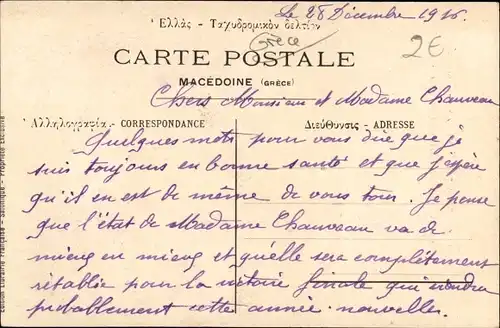 Le 28 Décembre 1916.
Ἑλλὰς - Ταχυδρομικὸν δελτίον
Grèce
2€
CARTE POSTALE
MACÉDOINE (GRÈCE)
Chers Monsieur et Madame Chauveau
Ἀλληλογραφία - CORRESPONDANCE
Διεύθυνσις - ADRESSE
Quelques mots pour vous dire que je
suis toujours en bonne santé et que j'espère
qu'il en est de même de vous tous. Je pense
que l'état de Madame Chauveau va de
mieux en mieux et qu'elle sera complètement
rétablie pour la victoire finale qui viendra
probablement cette année nouvelle.
Edition Librairie Française - Salonique - Propriété exclusive